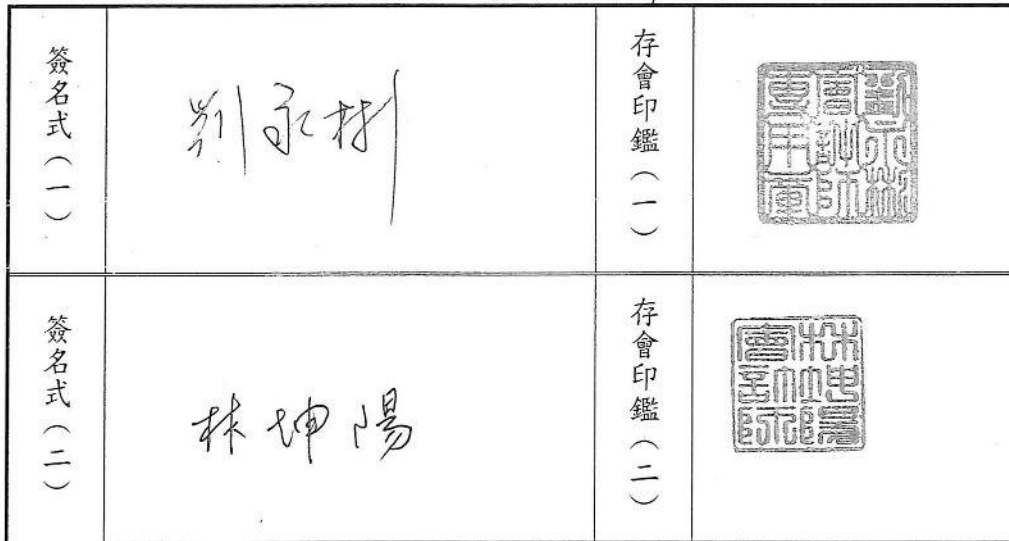 簽名式(一)
劉永彬
存會印鑑(一)
劉永彬
會計師
專用章
簽名式(二)
林坤陽
存會印鑑(二)
林坤陽
會計師